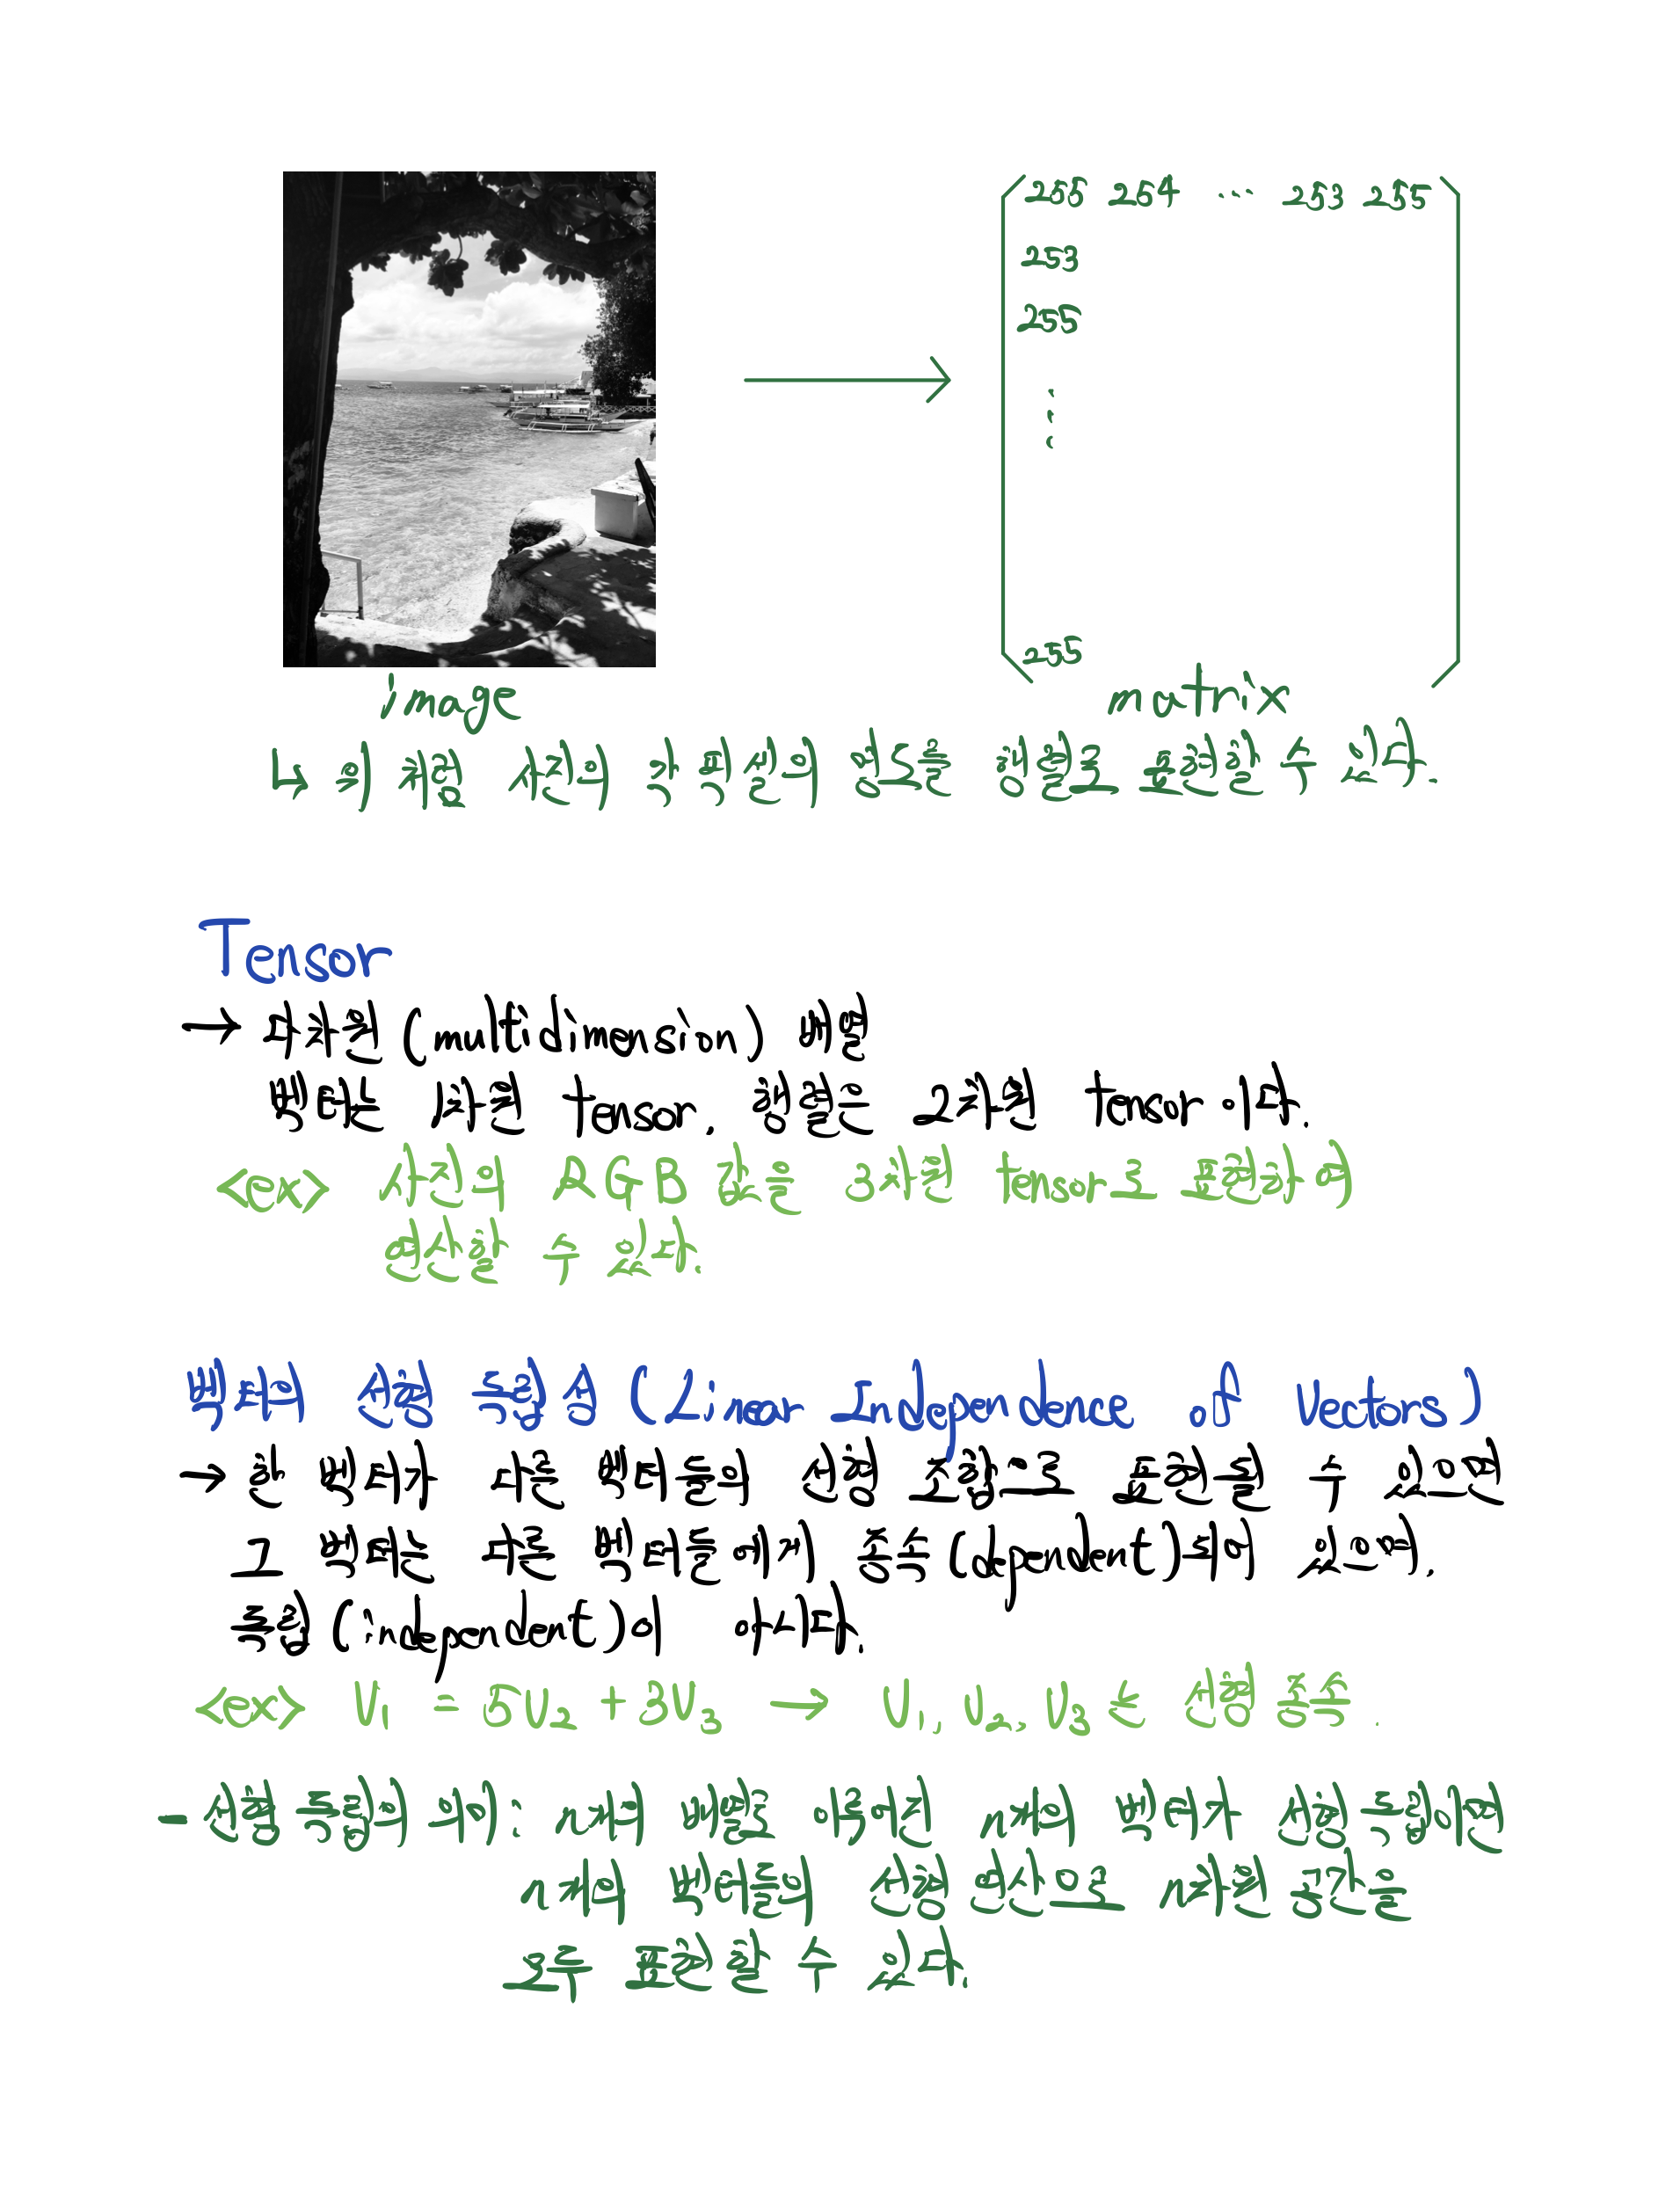 255 254 ... 253 255
253
255
⋮
255
image
matrix
↳ 위 처럼 사진의 각 픽셀의 명도를 행렬로 표현할 수 있다.
Tensor
→ 다차원 (multidimension) 배열
벡터는 1차원 tensor, 행렬은 2차원 tensor 이다.
<ex> 사진의 RGB 값을 3차원 tensor로 표현하여
연산할 수 있다.
벡터의 선형 독립성 (Linear Independence of Vectors)
→ 한 벡터가 다른 벡터들의 선형 조합으로 표현될 수 있으면
그 벡터는 다른 벡터들에게 종속(dependent)되어 있으며,
독립(independent)이 아니다.
<ex> V₁ = 5V₂ + 3V₃ → V₁, V₂, V₃는 선형 종속.
- 선형 독립의 의미: n개의 배열로 이루어진 n개의 벡터가 선형 독립이면
n개의 벡터들의 선형 연산으로 n차원 공간을
모두 표현할 수 있다.